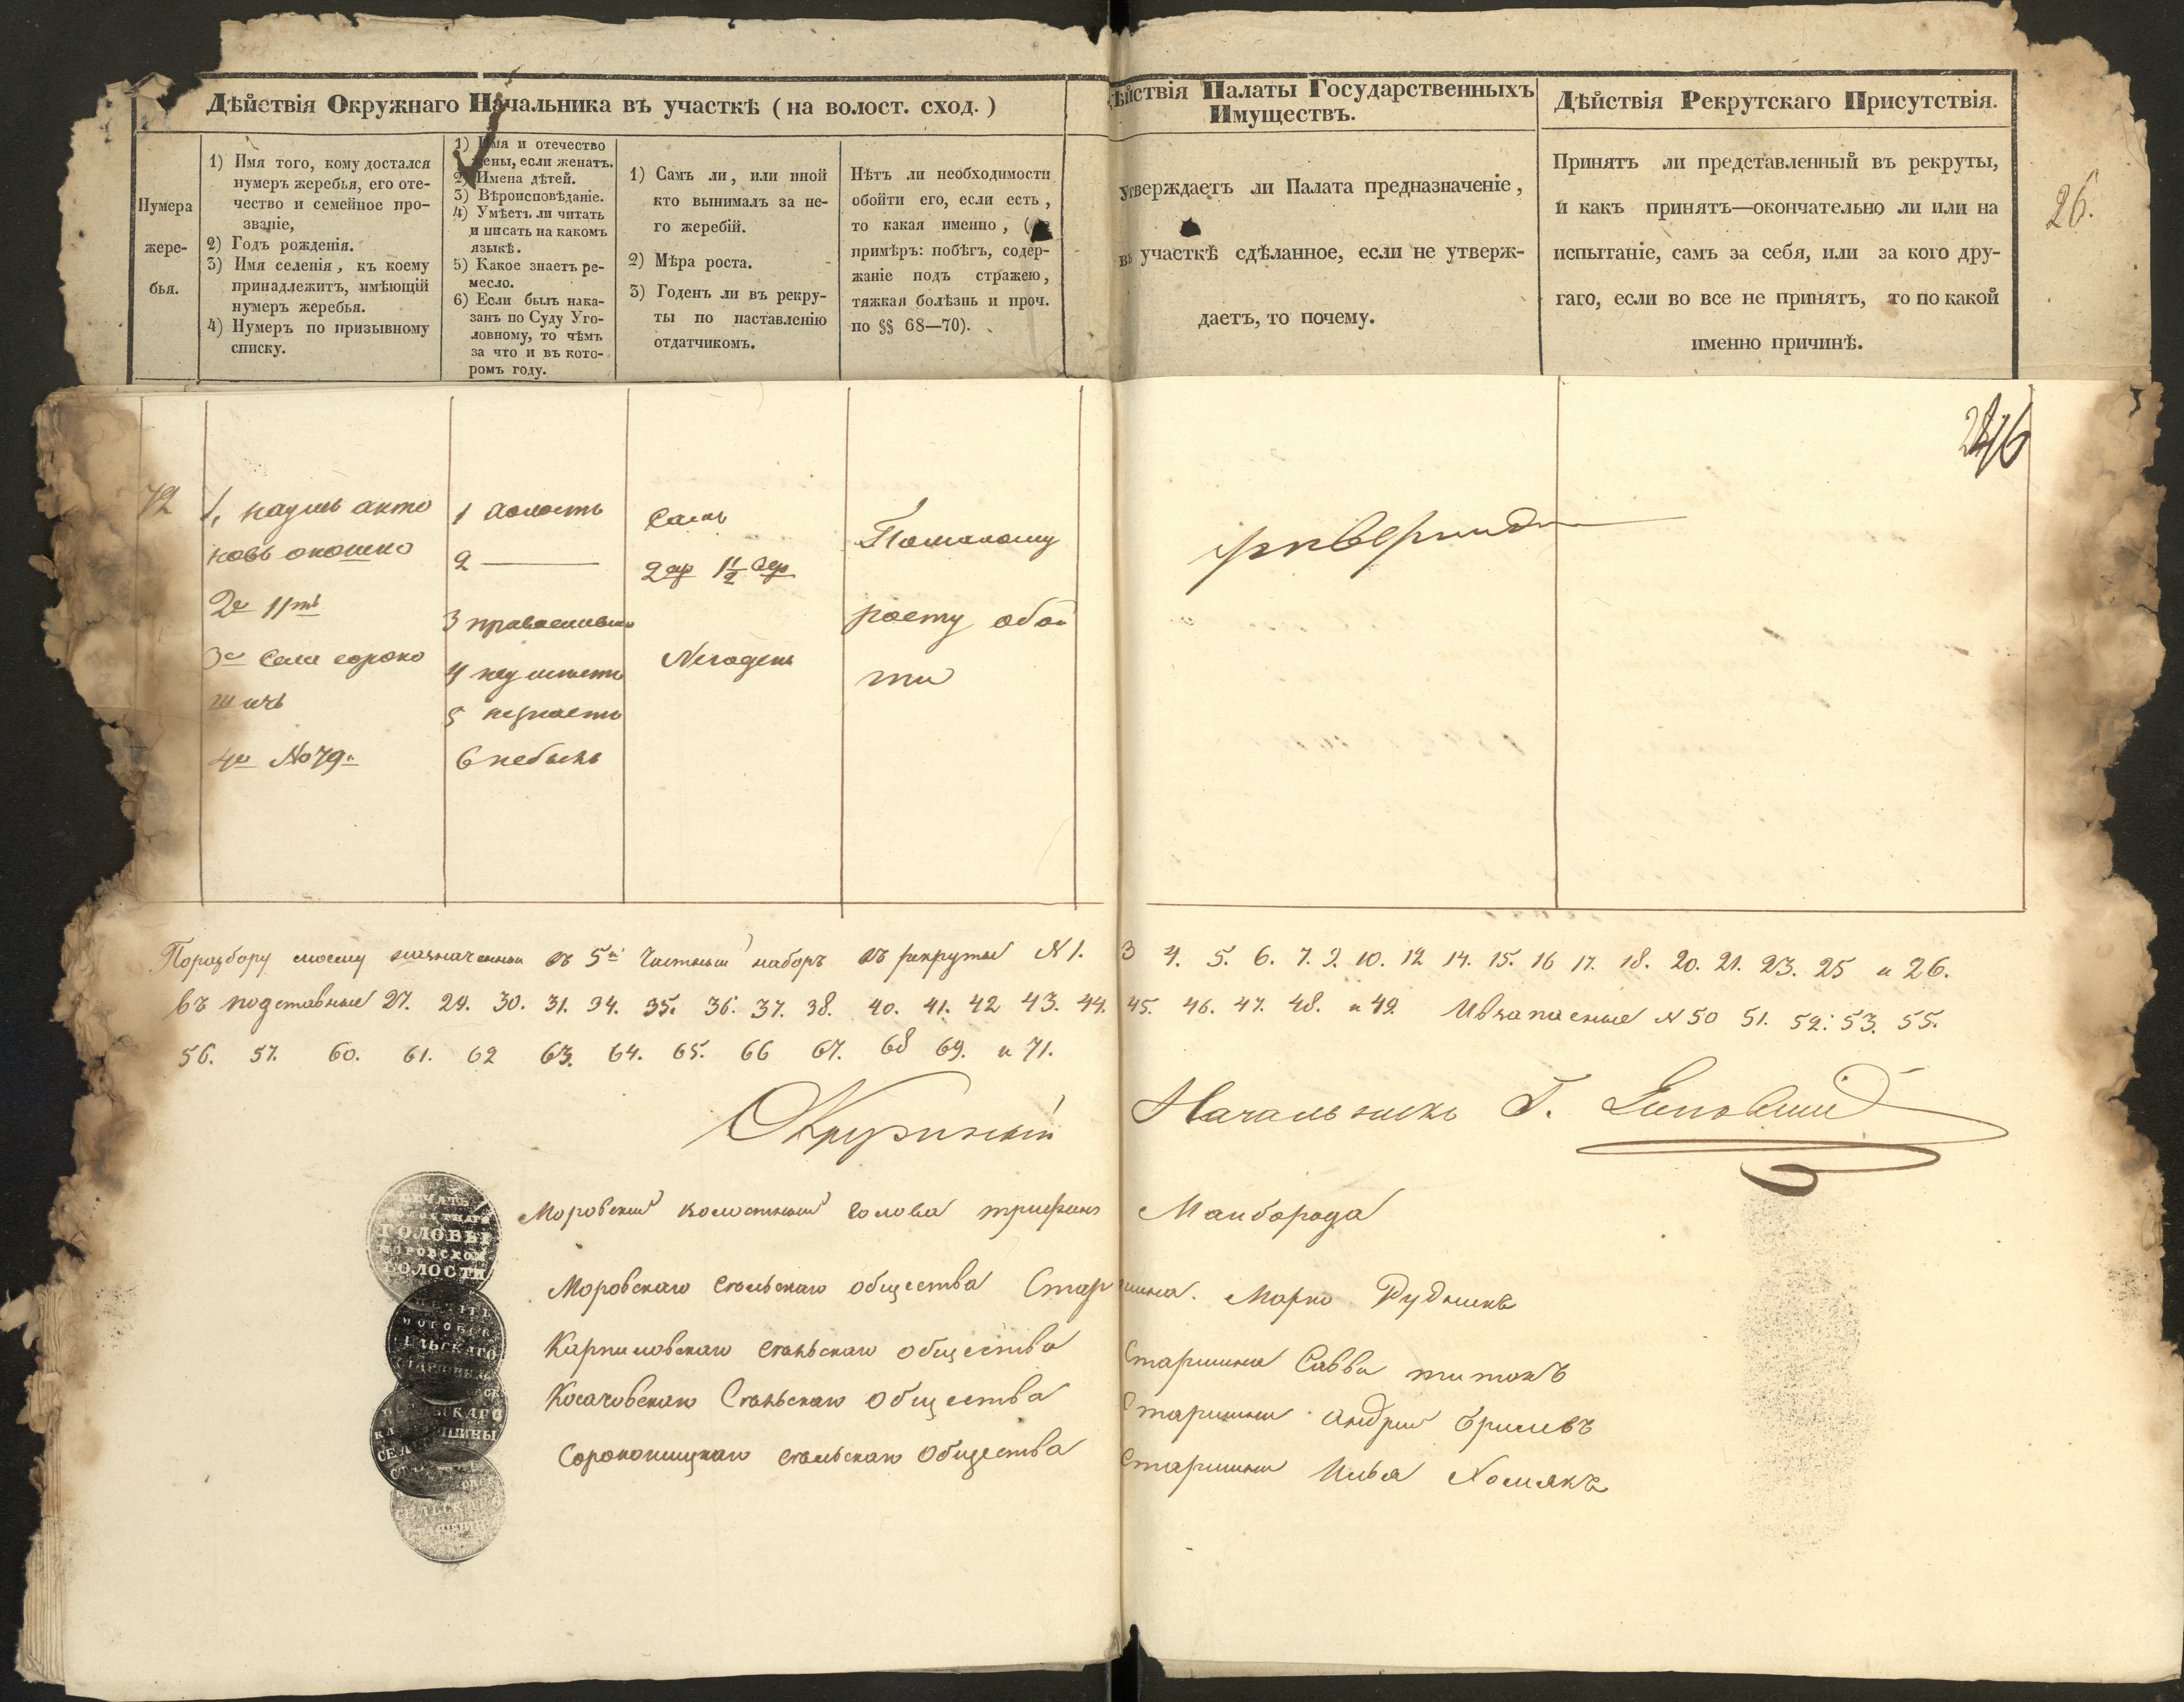 Дѣйствія Окружнаго Начальника въ участкѣ (на волост. сход.)
Дѣйствія Палаты Государственныхъ
Имуществъ.
Дѣйствія Рекрутскаго Присутствія.
Нумера
жере-
бья.
1) Имя того, кому достался
нумеръ жеребья, его оте-
чество и семейное про-
званіе,
2) Годъ рожденія.
3) Имя селенія, къ коему
принадлежитъ, имѣющій
нумеръ жеребья.
4) Нумеръ по призывному
списку.
1) Имя и отечество
жены, если женатъ.
2) Имена дѣтей.
3) Вѣроисповѣданіе.
4) Умѣетъ ли читать
и писать на какомъ
языкѣ.
5) Какое знаетъ ре-
месло.
6) Если былъ нака-
занъ по Суду Уго-
ловному, то чѣмъ
за что и въ кото-
ромъ году.
1) Самъ ли, или иной
кто вынималъ за не-
го жеребій.
2) Мѣра роста.
3) Годенъ ли въ рекру-
ты по наставленію
отдатчикомъ.
Нѣтъ ли необходимости
обойти его, если есть,
то какая именно, (на
примѣръ: побѣгъ, содер-
жаніе подъ стражею,
тяжкая болѣзнь и проч.
по §§ 68—70).
утверждаетъ ли Палата предназначеніе,
въ участкѣ сдѣланное, если не утверж-
даетъ, то почему.
Принятъ ли представленный въ рекруты,
и какъ принятъ—окончательно ли или на
испытаніе, самъ за себя, или за кого дру-
гаго, если во все не принятъ, то по какой
именно причинѣ.
26.
72
1, наумъ анто
новъ окошко
2е 11ть
3е Села сороко
шичь
4е No 79
1 холостъ
2 —
3 православн
4 неумѣетъ
5 незнаетъ
6 небылъ
Самъ
2 ар 1 1/2 вер
Негоденъ
Помалому
росту обой
ти
Поразбору моему назначенны въ 5й Частный наборъ въ рекруты N 1. 3 4. 5. 6. 7. 9. 10. 12 14. 15. 16 17. 18. 20. 21. 23. 25 и 26.
въ подставные 27. 29. 30. 31. 34. 35. 36. 37. 38. 40. 41. 42 43. 44. 45. 46. 47. 48. и 49. Ивзапасные N 50 51. 52. 53. 55.
56. 57. 60. 61. 62 63. 64. 65. 66 67. 68 69. и 71.
Окружный Начальникъ
Моровский волостный голова трифонъ Майборода
Моровскаго сельскаго общества Старшина. Марко Рудникъ
Карпиловскаго сельскаго общества Старшина Савва титокъ
Косачовскаго Сельскаго Общества Старшина андрий
Сорокошицкаго сельскаго Общества Старшина Илья Хомякъ
ПЕЧАТЬ
ГОЛОВЫ
МОРОВСКОЙ
ВОЛОСТИ